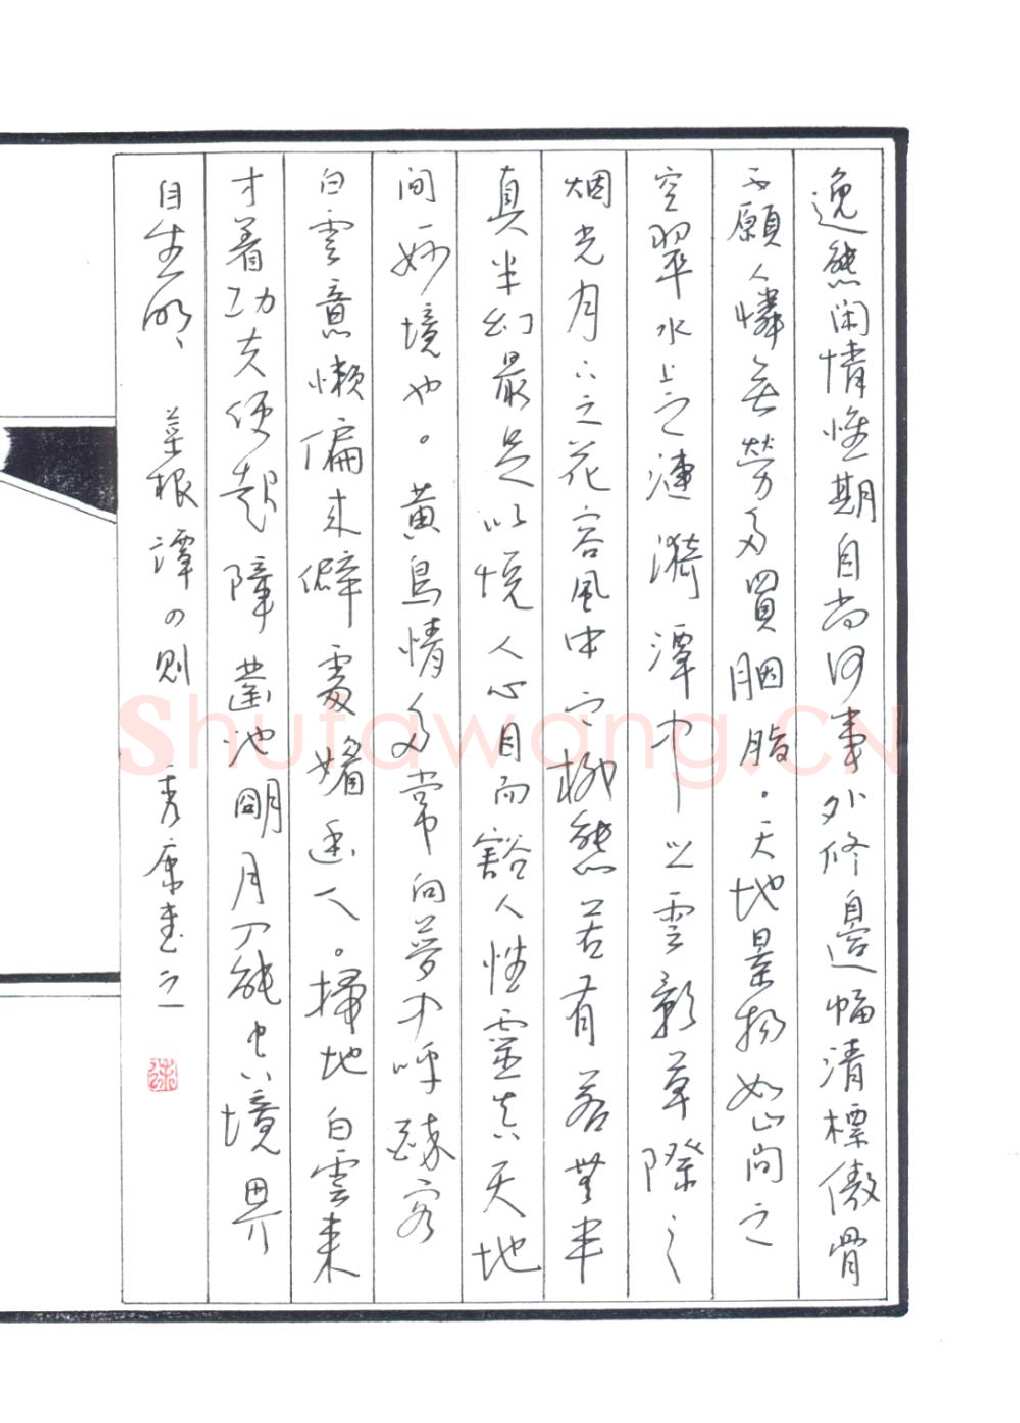 逸態闲情惟期自尚何事外修邊幅清標傲骨
不願人憐無勞多買胭脂。天地景物如山間之
空翠水上之漣漪潭中之雲影草際之
烟光月下之花容風中之柳態若有若無半
真半幻最足以悅人心目而豁人性靈真天地
间一妙境也。黃鳥情多常向夢中呼醉客
白雲意懶偏来僻處媚幽人。掃地白雲来
才着功夫便起障鑿池明月入能空境界
自生明、菜根譚四则 秀康書之
Shufawang.CN